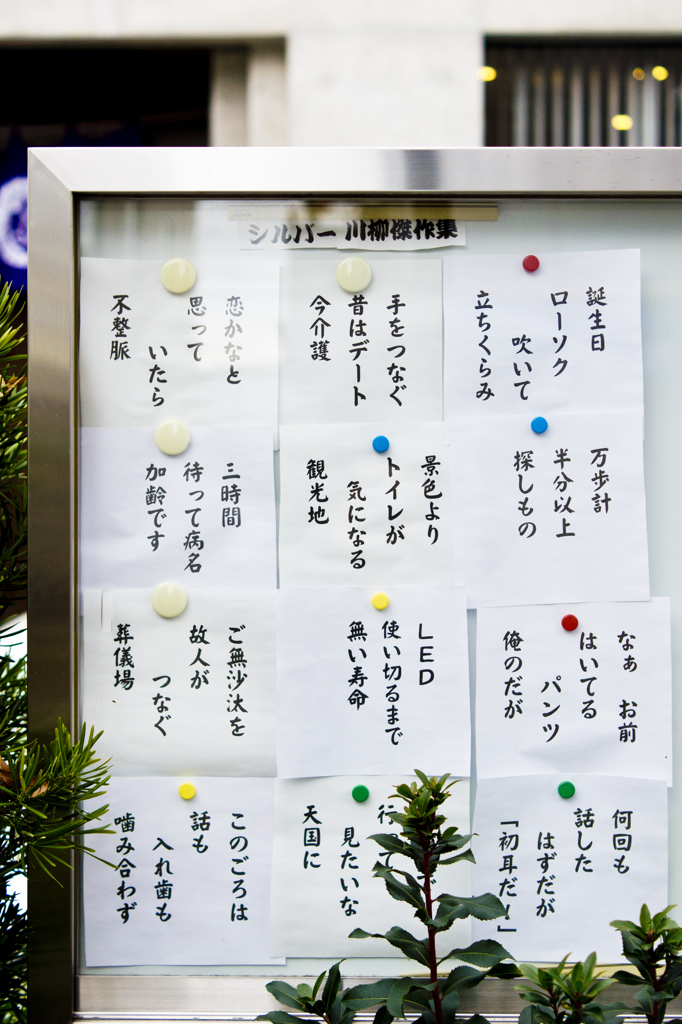 シルバー川柳傑作集
誕生日
ローソク
吹いて
立ちくらみ
万歩計
半分以上
探しもの
なぁ　お前
はいてる
パンツ
俺のだが
何回も
話した
はずだが
「初耳だ！」
手をつなぐ
昔はデート
今介護
景色より
トイレが
気になる
観光地
LED
使い切るまで
無い寿命
見たいな
天国に
恋かなと
思って
いたら
不整脈
三時間
待って病名
加齢です
ご無沙汰を
故人が
つなぐ
葬儀場
このごろは
話も
入れ歯も
噛み合わず